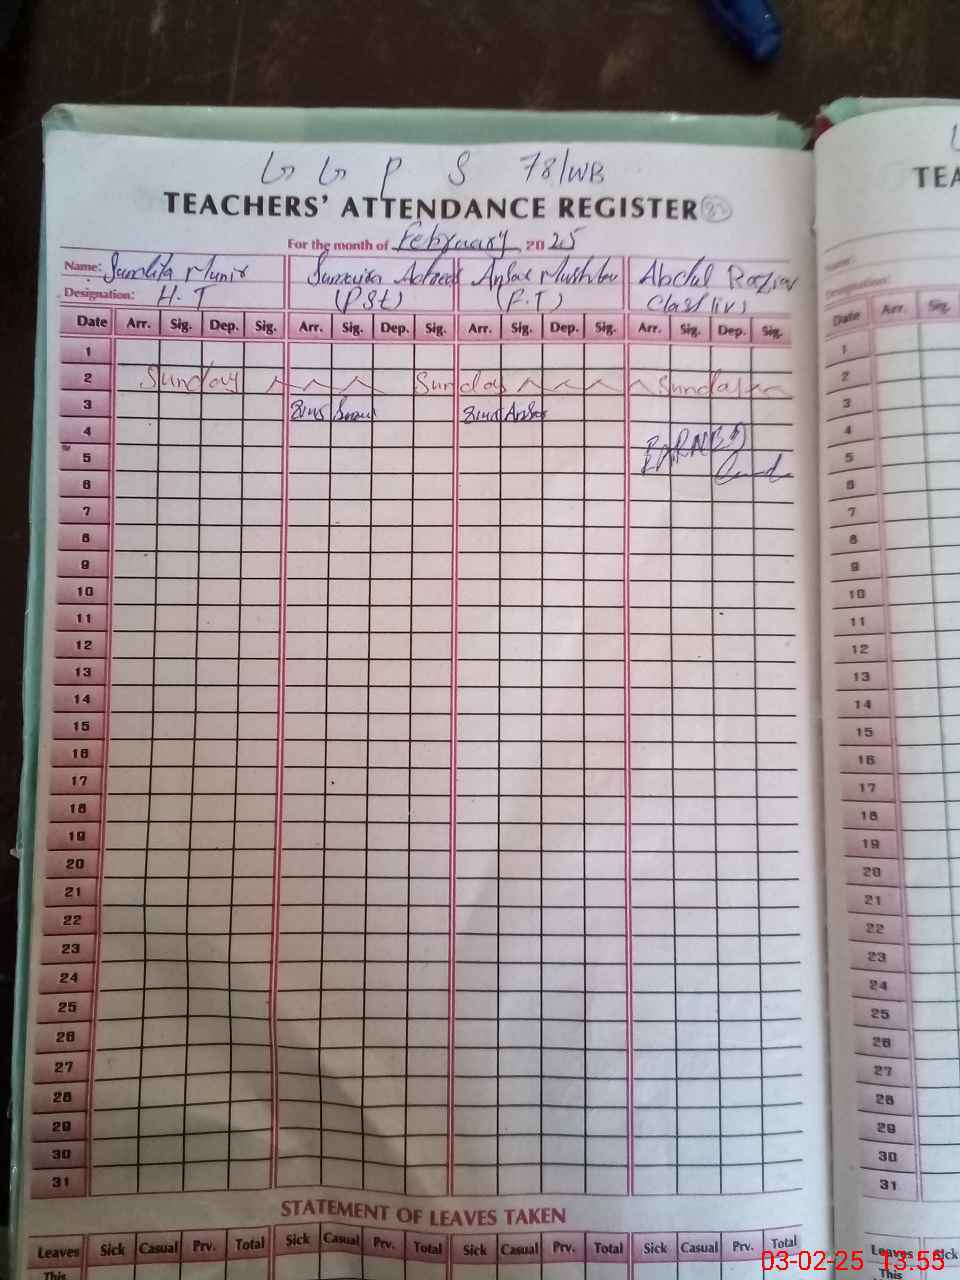 G G P S 78/WB
TEACHERS' ATTENDANCE REGISTER
For the month of February 2025
Name: Munir
Designation: H.T (PSt) (P.T)
Abdul
Date Arr. Sig. Dep. Sig. Arr. Sig. Dep. Sig. Arr. Sig. Dep. Sig. Arr. Sig. Dep. Sig.
1
2 Sunday Sunday Sunday
3
4
5
6
7
8
9
10
11
12
13
14
15
16
17
18
19
20
21
22
23
24
25
26
27
28
29
30
31
STATEMENT OF LEAVES TAKEN
Leaves Sick Casual Prv. Total Sick Casual Prv. Total Sick Casual Prv. Total Sick Casual Prv. Total
This
TEA
Designation:
Date Arr. Sig.
1
2
3
4
5
6
7
8
9
10
11
12
13
14
15
16
17
18
19
20
21
22
23
24
25
26
27
28
29
30
31
Leaves Sick
This
03-02-25 13.55